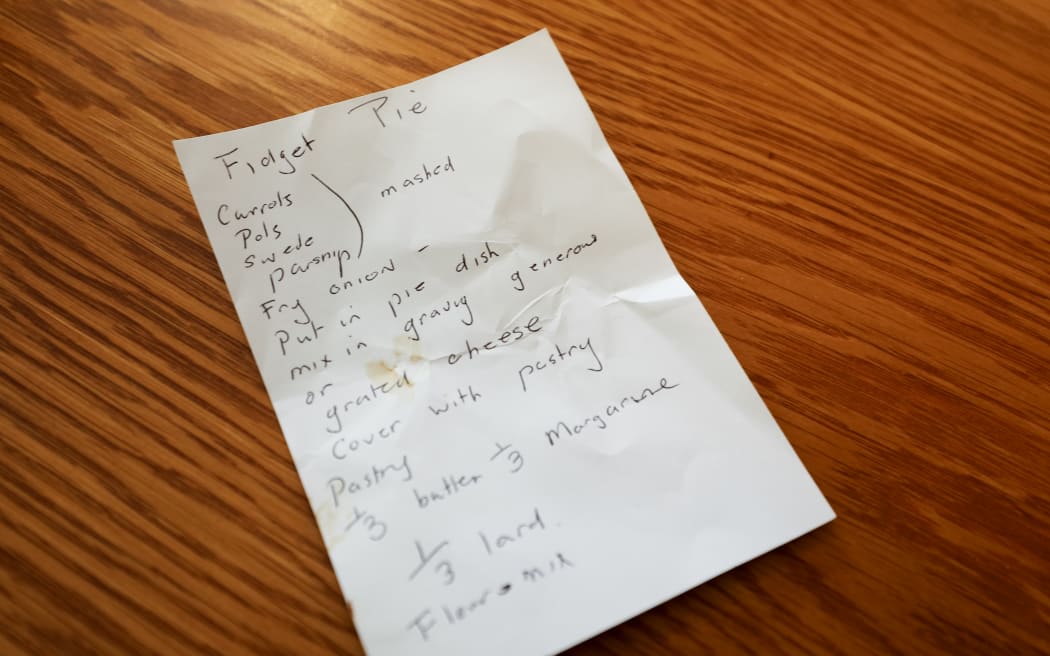 Fidget Pie
Carrots
Pots
Swede
Parsnip
) mashed
Fry onion -
Put in pie dish
mix in gravy generous
or
grated cheese
Cover with pastry
Pastry
1/3 butter 1/3 Margarine
1/3 lard.
Flour - mix